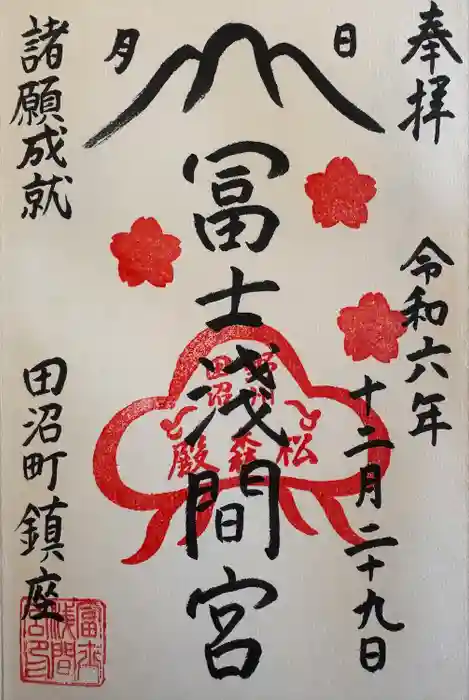 奉拝
令和六年
十二月二十九日
日
月
冨士浅間宮
野州
田沼
松森殿
諸願成就
田沼町鎮座